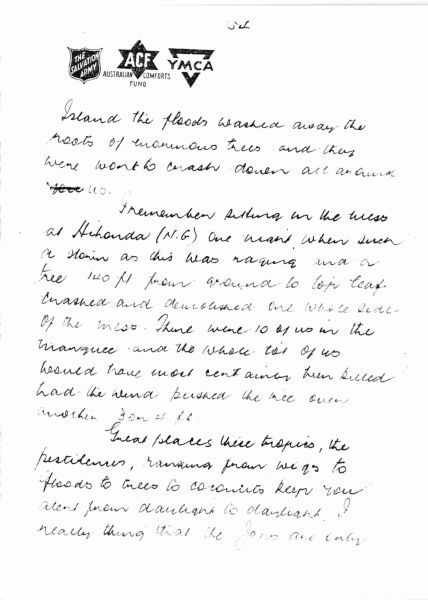 THE SALVATION ARMY
ACF
AUSTRALIAN COMFORTS FUND
YMCA
Island the floods washed away the
roots of enormous trees and they
were wont to crash down all around
us.
I remember sitting in the mess
at Hihonda (N.G) one night when such
a storm as this was raging and a
tree 140 ft from ground to top leaf
crashed and demolished one whole side
of the mess. There were 10 of us in the
marquee and the whole lot of us
would have most certainly been killed
had the wind pushed the tree over
another 3 or 4 ft.
Great places these tropics, the
pestilences, ranging from wogs to
floods to trees to coconuts keep you
alert from daylight to daylight. I
really thing that the Japs are only